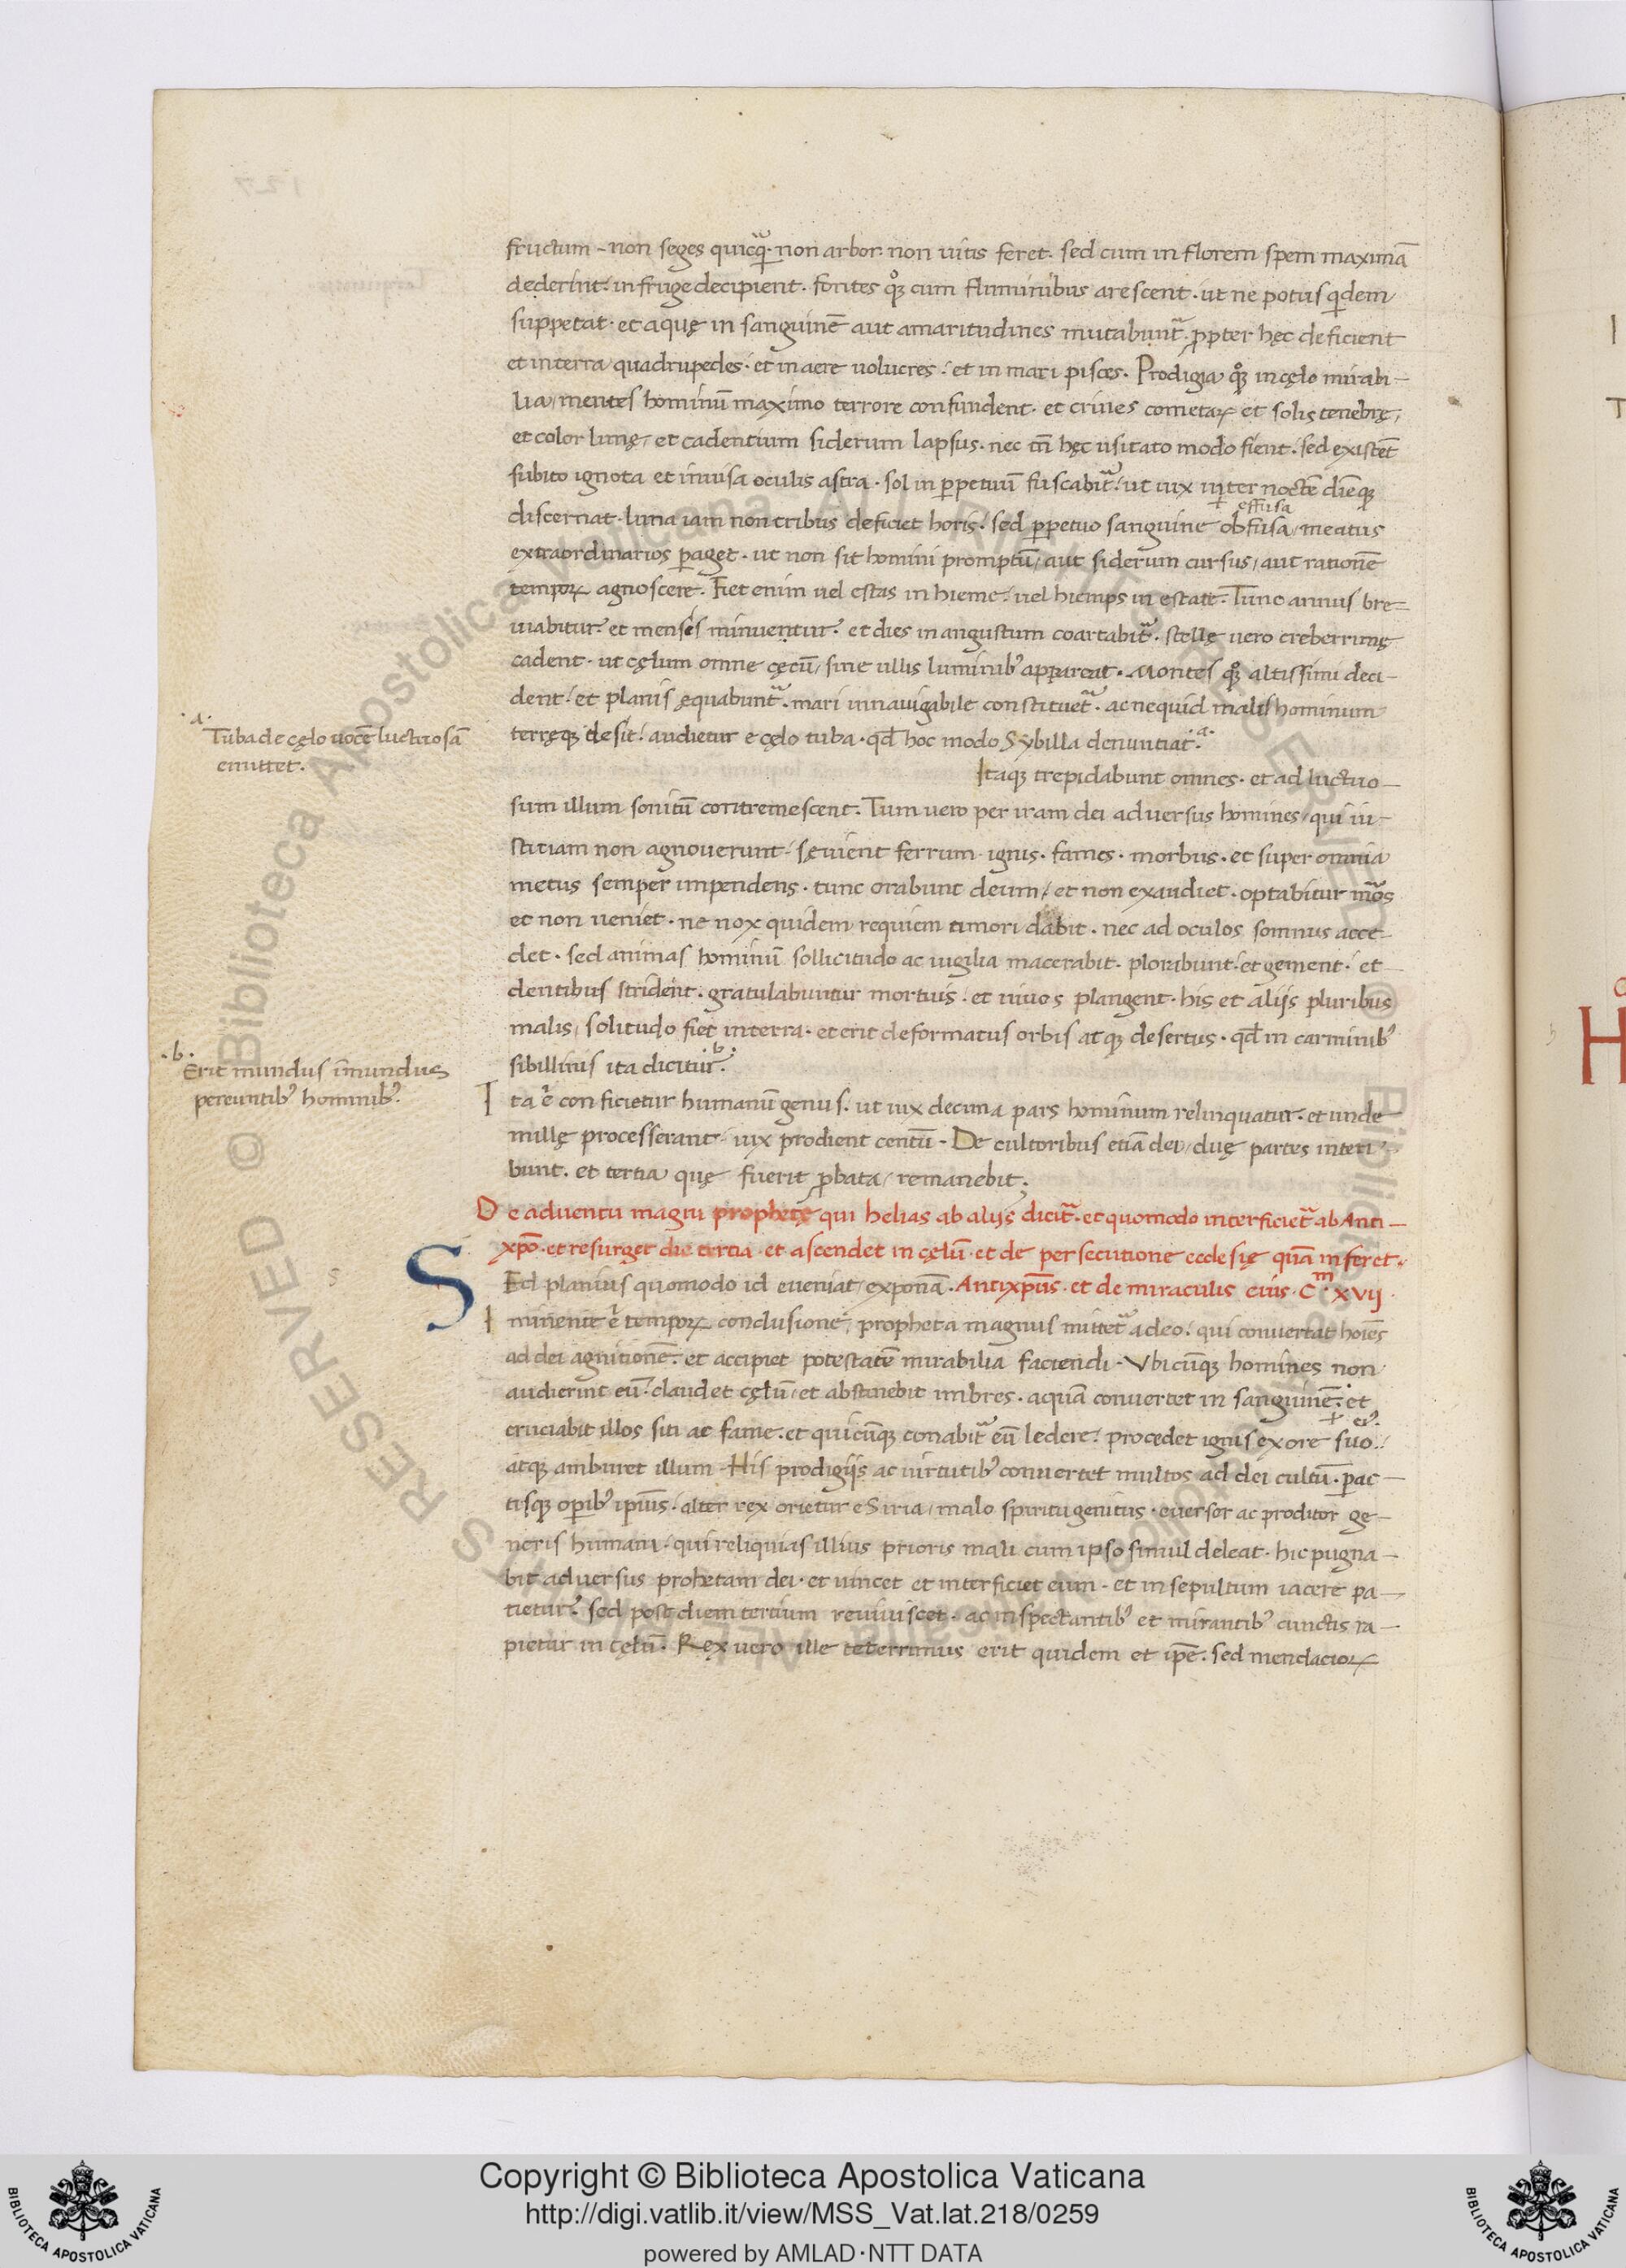 fructum - non seges quicq̃. non arbor. non uitis feret. sed cum in florem spem maximā
dederint. in fruge decipient. fontes qꝫ cum fluminibus arescent. ut ne potus qͥdem
suppetat. et aquę in sanguinē aut amaritudines mutabunt᷑. ꝓpter hęc deficient
et in terra quadrupedes. et in aere uolucres. et in mari pisces. Prodigia qꝫ in cęlo mirabi-
lia, mentes hominū maximo terrore confundent. et crines cometaꝝ et solis tenebrę,
et color lunę, et cadentium siderum lapsus. nec tñ hęc usitato modo fient. sed existēt
subito ignota et inuisa oculis astra. sol in ꝑpetuū fuscabit᷑. ut uix inter noctē diēqꝫ
+ effusa
discernat. luna iam non tribus deficiet horis. sed ꝑpetuo sanguine obfusa, meatus
extraordinarios ꝑaget. ut non sit homini promptū, aut siderum cursus, aut rationē
tempoꝝ agnoscere. Fiet enim uel estas in hieme. uel hiemps in estate. Tunc annus bre-
uiabitur. et menses minuentur. et dies in angustum coartabit᷑. stellę uero creberrimę
cadent. ut cęlum omne cęcū, sine ullis luminibꝰ appareat. Montes qꝫ altissimi deci-
dent. et planis ęquabunt᷑. mari innauigabile constituet᷑. ac nequid malis hominum
terręqꝫ desit. audietur e cęlo tuba. qđ hoc modo Sybilla denuntiat. .a.
Itaqꝫ trepidabunt omnes. et ad luctuo-
.a.
Tuba de cęlo uocē luctuosā
emittet.
sum illum sonitū contremescent. Tum uero per iram dei adversus homines, qui iu-
stitiam non agnouerunt. sęuient ferrum. ignis. fames. morbus. et super omnia
metus semper impendens. tunc orabunt deum, et non exaudiet. optabitur mo᷑s
et non ueniet. ne nox quidem requiem timori dabit. nec ad oculos somnus acce-
det. sed animas hominū sollicitudo ac uigilia macerabit. plorabunt. et gement. et
dentibus strident. gratulabuntur mortuis. et uiuos plangent. his et alijs pluribus
malis, solitudo fiet in terra. et erit deformatus orbis atqꝫ desertus. qđ in carminibꝰ
sibillinis ita dicitur. .b.
.b.
Erit mundus īmundus
pereuntibꝰ hominibꝰ.
Ita .n. conficietur humanū genus. ut uix decima pars hominum relinquatur. et unde
mille processerant. uix prodient centū. De cultoribus etiā dei, duę partes interi
bunt. et tertia quę fuerit ꝓbata, remanebit.
De aduentu magni prophetę qui helias ab alijs dicit᷑. et quomodo interficiet᷑ ab Anti-
xp̄o. et resurget die tertia. et ascendet in cęlū. et de persecutione ecclesię quā inferet.
SEd planius quomodo id eveniat, exponā. Antixp̄us. et de miraculis eius. Cᵐ. xvij
Iminente .n. tempoꝝ conclusione, propheta magnus mittet᷑ a deo. qui convertat hoīes
ad dei agnitionē. et accipiet potestatē mirabilia faciendi. Vbicūqꝫ homines non
audierint eū. claudet cęlū, et abstinebit imbres. aquā convertet in sanguinē. et
+ eiꝰ.
cruciabit illos siti ac fame. et quicūqꝫ conabit᷑ eū ledere. procedet ignis ex ore suo.
atqꝫ amburet illum. His prodigijs ac uirtutibꝰ convertet multos ad dei cultū. ꝑac-
tisqꝫ oꝑibꝰ ip̄ius. alter rex orietur e Siria, malo spiritu genitus. eversor ac proditor ge-
neris humani. qui reliquias illius prioris mali cum ipso simul deleat. hic pugna-
bit adversus prohetam dei. et uincet et interficiet eum. et insepultum iacere pa-
tietur. sed post diem tertium reviuiscet. ac inspectantibꝰ et mirantibꝰ cunctis ra-
pietur in cęlū. Rex vero ille teterrimus erit quidem et ip̄e. sed mendacioꝝ
Copyright © Biblioteca Apostolica Vaticana
http://digi.vatlib.it/view/MSS_Vat.lat.218/0259
powered by AMLAD·NTT DATA